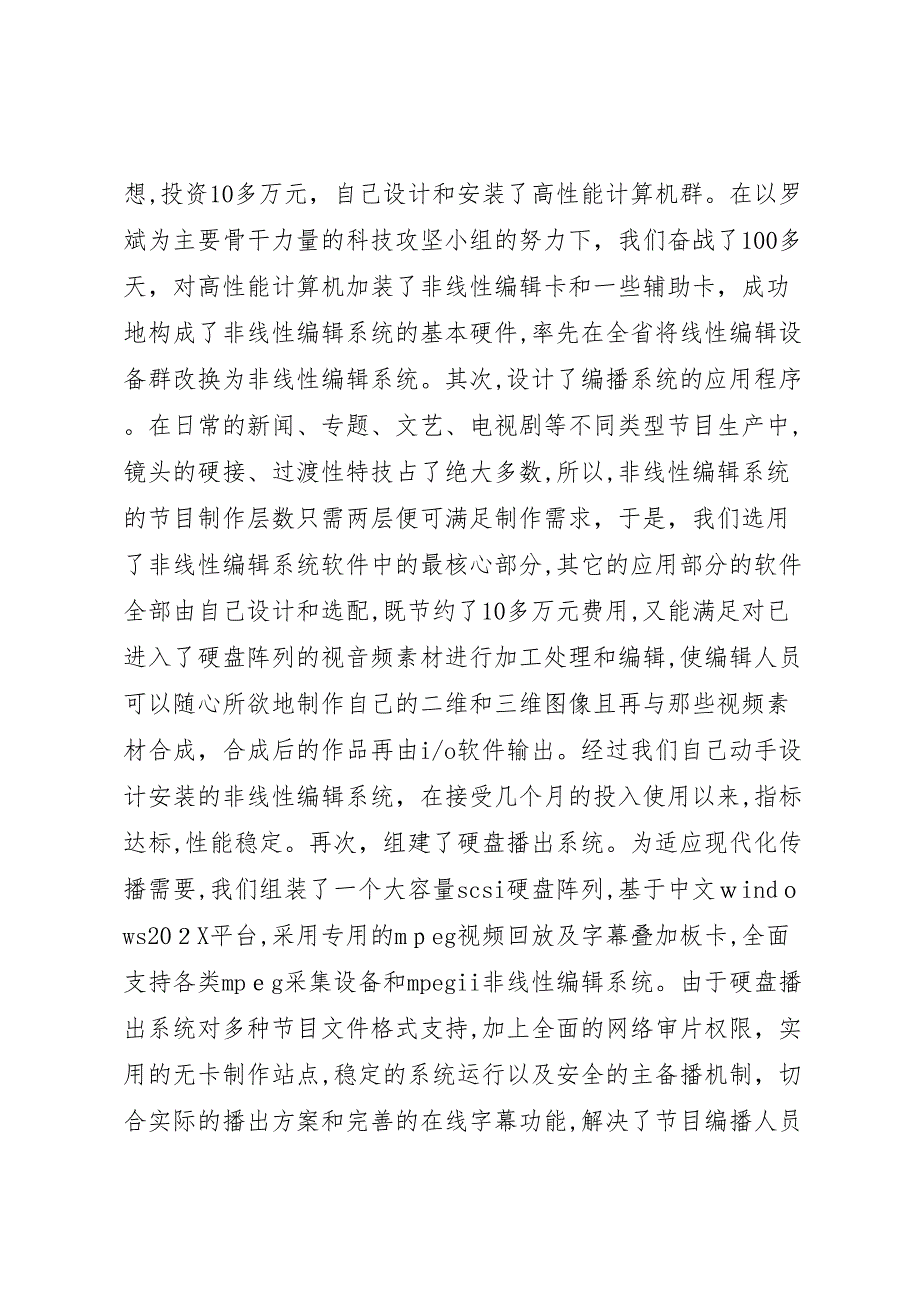 想,投资10多万元，自己设计和安装了高性能计算机群。在以罗
斌为主要骨干力量的科技攻坚小组的努力下，我们奋战了100多
天，对高性能计算机加装了非线性编辑卡和一些辅助卡，成功
地构成了非线性编辑系统的基本硬件,率先在全省将线性编辑设
备群改换为非线性编辑系统。其次,设计了编播系统的应用程序
。在日常的新闻、专题、文艺、电视剧等不同类型节目生产中,
镜头的硬接、过渡性特技占了绝大多数,所以,非线性编辑系统
的节目制作层数只需两层便可满足制作需求，于是，我们选用
了非线性编辑系统软件中的最核心部分,其它的应用部分的软件
全部由自己设计和选配,既节约了10多万元费用,又能满足对已
进入了硬盘阵列的视音频素材进行加工处理和编辑,使编辑人员
可以随心所欲地制作自己的二维和三维图像且再与那些视频素
材合成，合成后的作品再由i/o软件输出。经过我们自己动手设
计安装的非线性编辑系统，在接受几个月的投入使用以来,指标
达标,性能稳定。再次，组建了硬盘播出系统。为适应现代化传
播需要,我们组装了一个大容量scsi硬盘阵列,基于中文ｗindｏ
ws20２X平台,采用专用的mｐeg视频回放及字幕叠加板卡,全面
支持各类mpｅg采集设备和mpegii非线性编辑系统。由于硬盘播
出系统对多种节目文件格式支持,加上全面的网络审片权限，实
用的无卡制作站点,稳定的系统运行以及安全的主备播机制，切
合实际的播出方案和完善的在线字幕功能,解决了节目编播人员